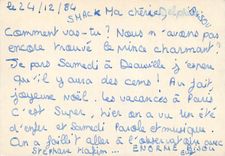 le 24/12/84
SMACK Ma chérie Delphine BISOU
Comment vas-tu? Nous n'avons pas
encore trouvé le Prince charmant?
Je pars Samedi à Deauville j'espère
qu'il y aura des cons! Au fait
joyeuse noël. les vacances à Paris
C'est Super, hier on a vu un été
d'enfer et Samedi Parole et musique.
On a failli aller à l'observatoire avec
Stéphane ENORME BISOU